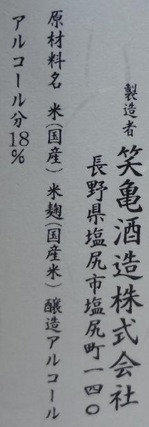 製造者 笑亀酒造株式会社
長野県塩尻市塩尻町一四〇
原材料名 米(国産) 米麹(国産米) 醸造アルコール
アルコール分18%